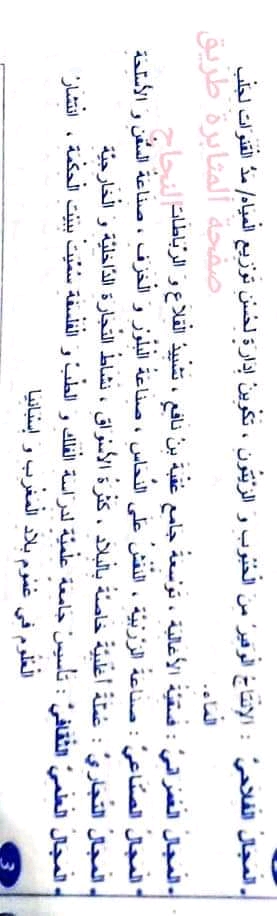 • المجال الفلاحيّ : الإنتاج الوفير من الحبوب و الزيتون ، تكوين إدارة لحسن توزيع المياه/ مدّ القنوات لجلب
الماء.
صفحة المثابرة طريق
النجاح
• المجال العمرانيّ : فسقيّة الأغالبة ، توسعة جامع عقبة بن نافع ، تشييد القلاع و الرباطات
• المجال الصناعيّ : صناعة الزربيّة ، النقش على النحاس ، صناعة البلّور و الخزف ، صناعة السفن و الأسلحة
• المجال التجاريّ : عملة أغلبيّة خاصّة بالبلاد ، كثرة الأسواق ، نشاط التجارة الداخليّة و الخارجيّة
• المجال العلمي الثقافيّ : تأسيس جامعة علميّة لدراسة الفلك و الطبّ و الفلسفة سمّيت ببيت الحكمة ، انتشار
العلوم في عموم بلاد المغرب و إسبانيا
3